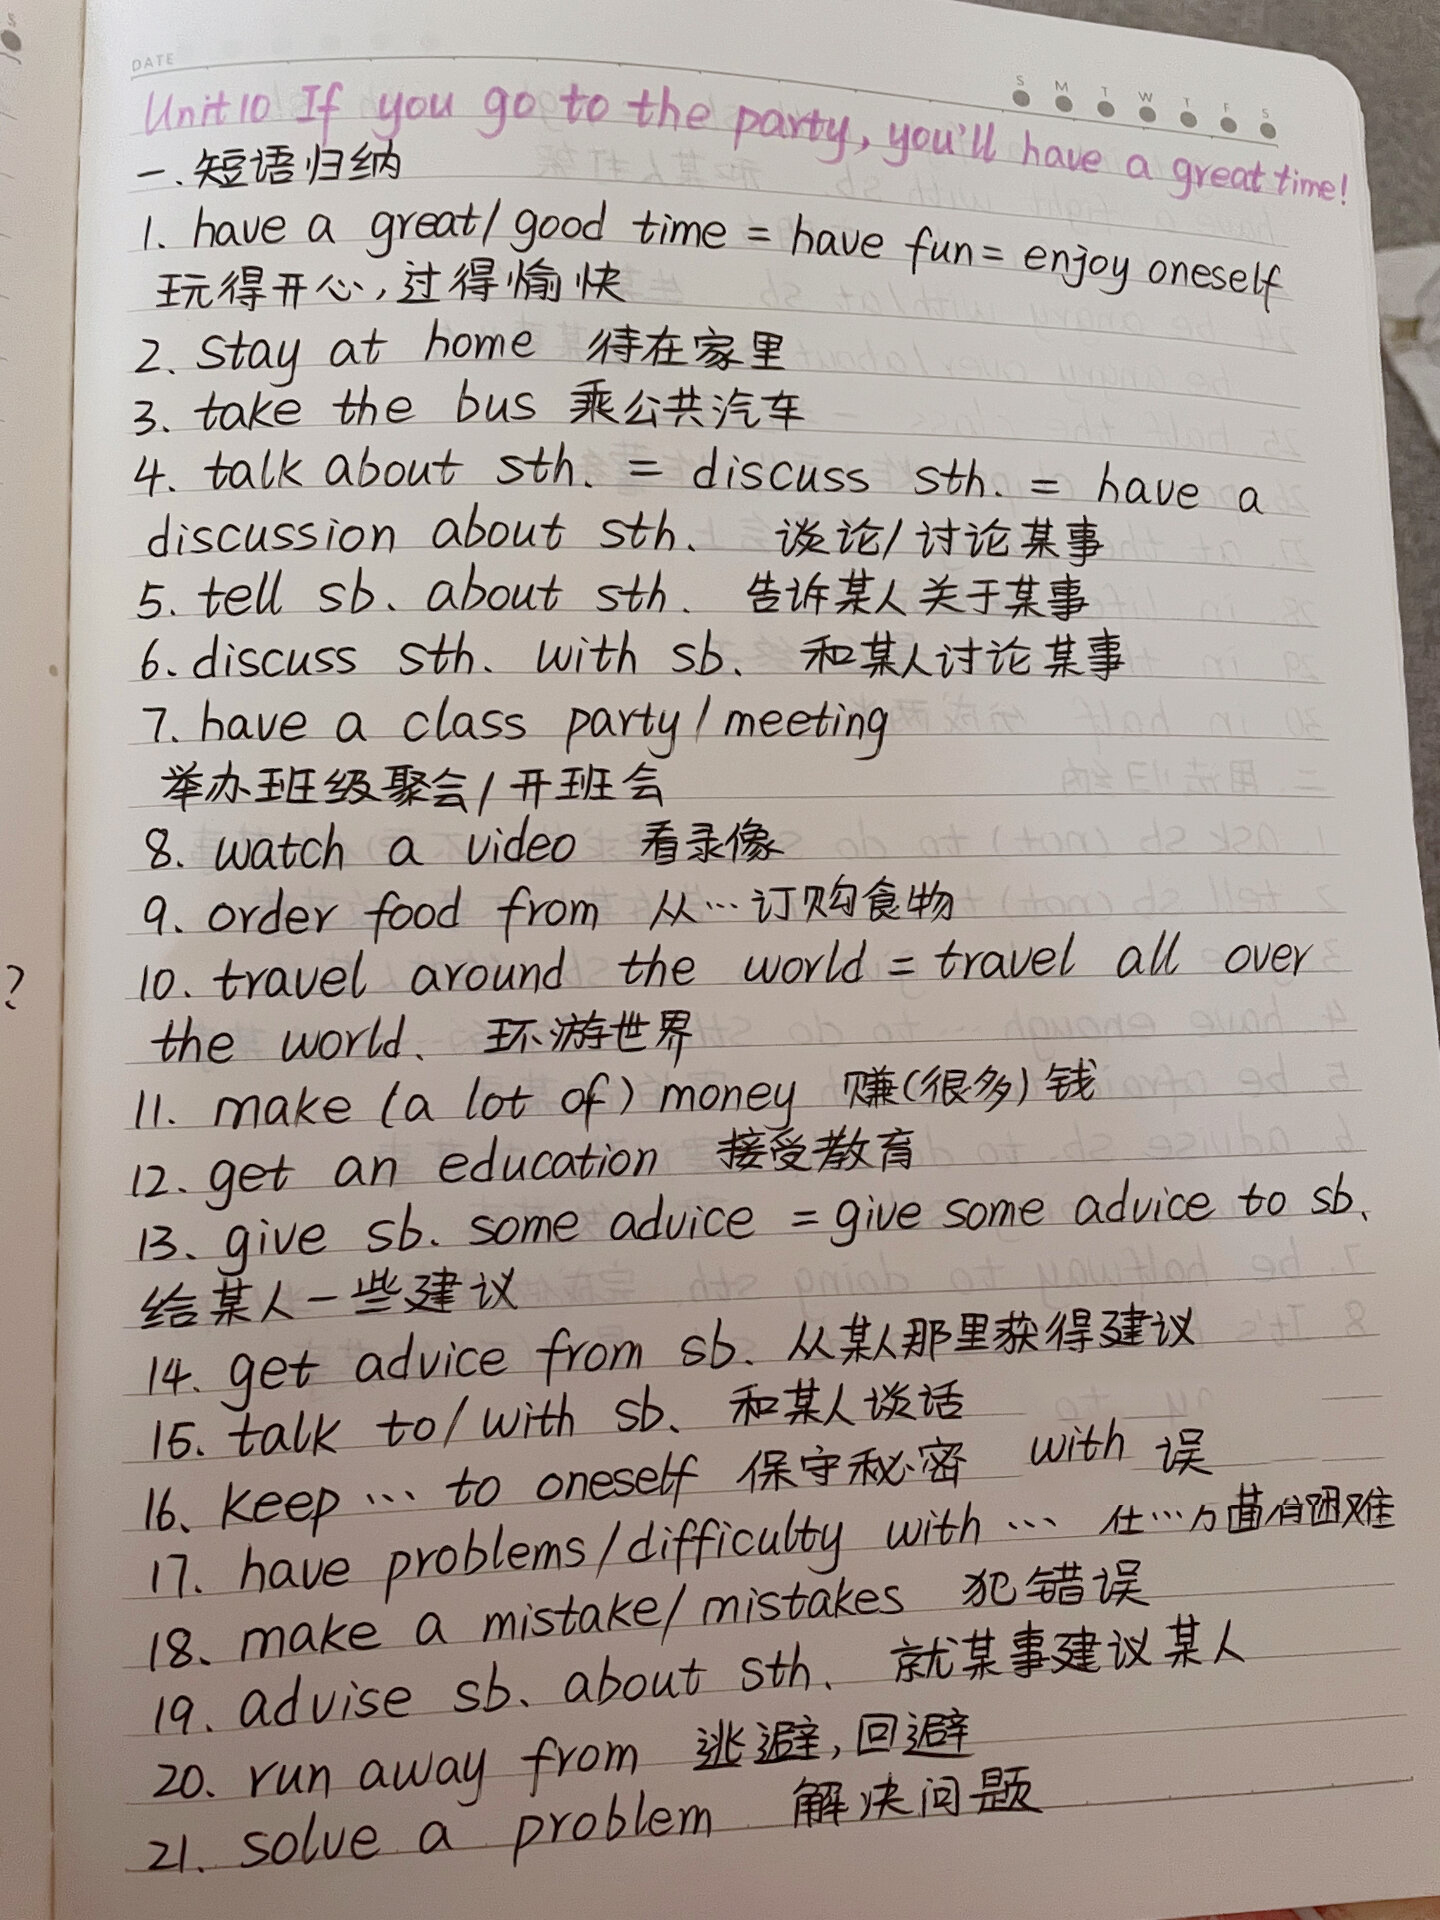 DATE
S M T W T F S
Unit 10 If you go to the party, you'll have a great time!
一.短语归纳
1. have a great/good time = have fun = enjoy oneself
玩得开心,过得愉快
2. stay at home 待在家里
3. take the bus 乘公共汽车
4. talk about sth. = discuss sth. = have a
discussion about sth. 谈论/讨论某事
5. tell sb. about sth. 告诉某人关于某事
6. discuss sth. with sb. 和某人讨论某事
7. have a class party/meeting
举办班级聚会/开班会
8. watch a video 看录像
9. order food from 从…订购食物
10. travel around the world = travel all over
the world. 环游世界
11. make (a lot of) money 赚(很多)钱
12. get an education 接受教育
13. give sb. some advice = give some advice to sb.
给某人一些建议
14. get advice from sb. 从某人那里获得建议
15. talk to/with sb. 和某人谈话
16. keep … to oneself 保守秘密 with 误
17. have problems/difficulty with … 在…方面有困难
18. make a mistake/mistakes 犯错误
19. advise sb. about sth. 就某事建议某人
20. run away from 逃避,回避
21. solve a problem 解决问题
?